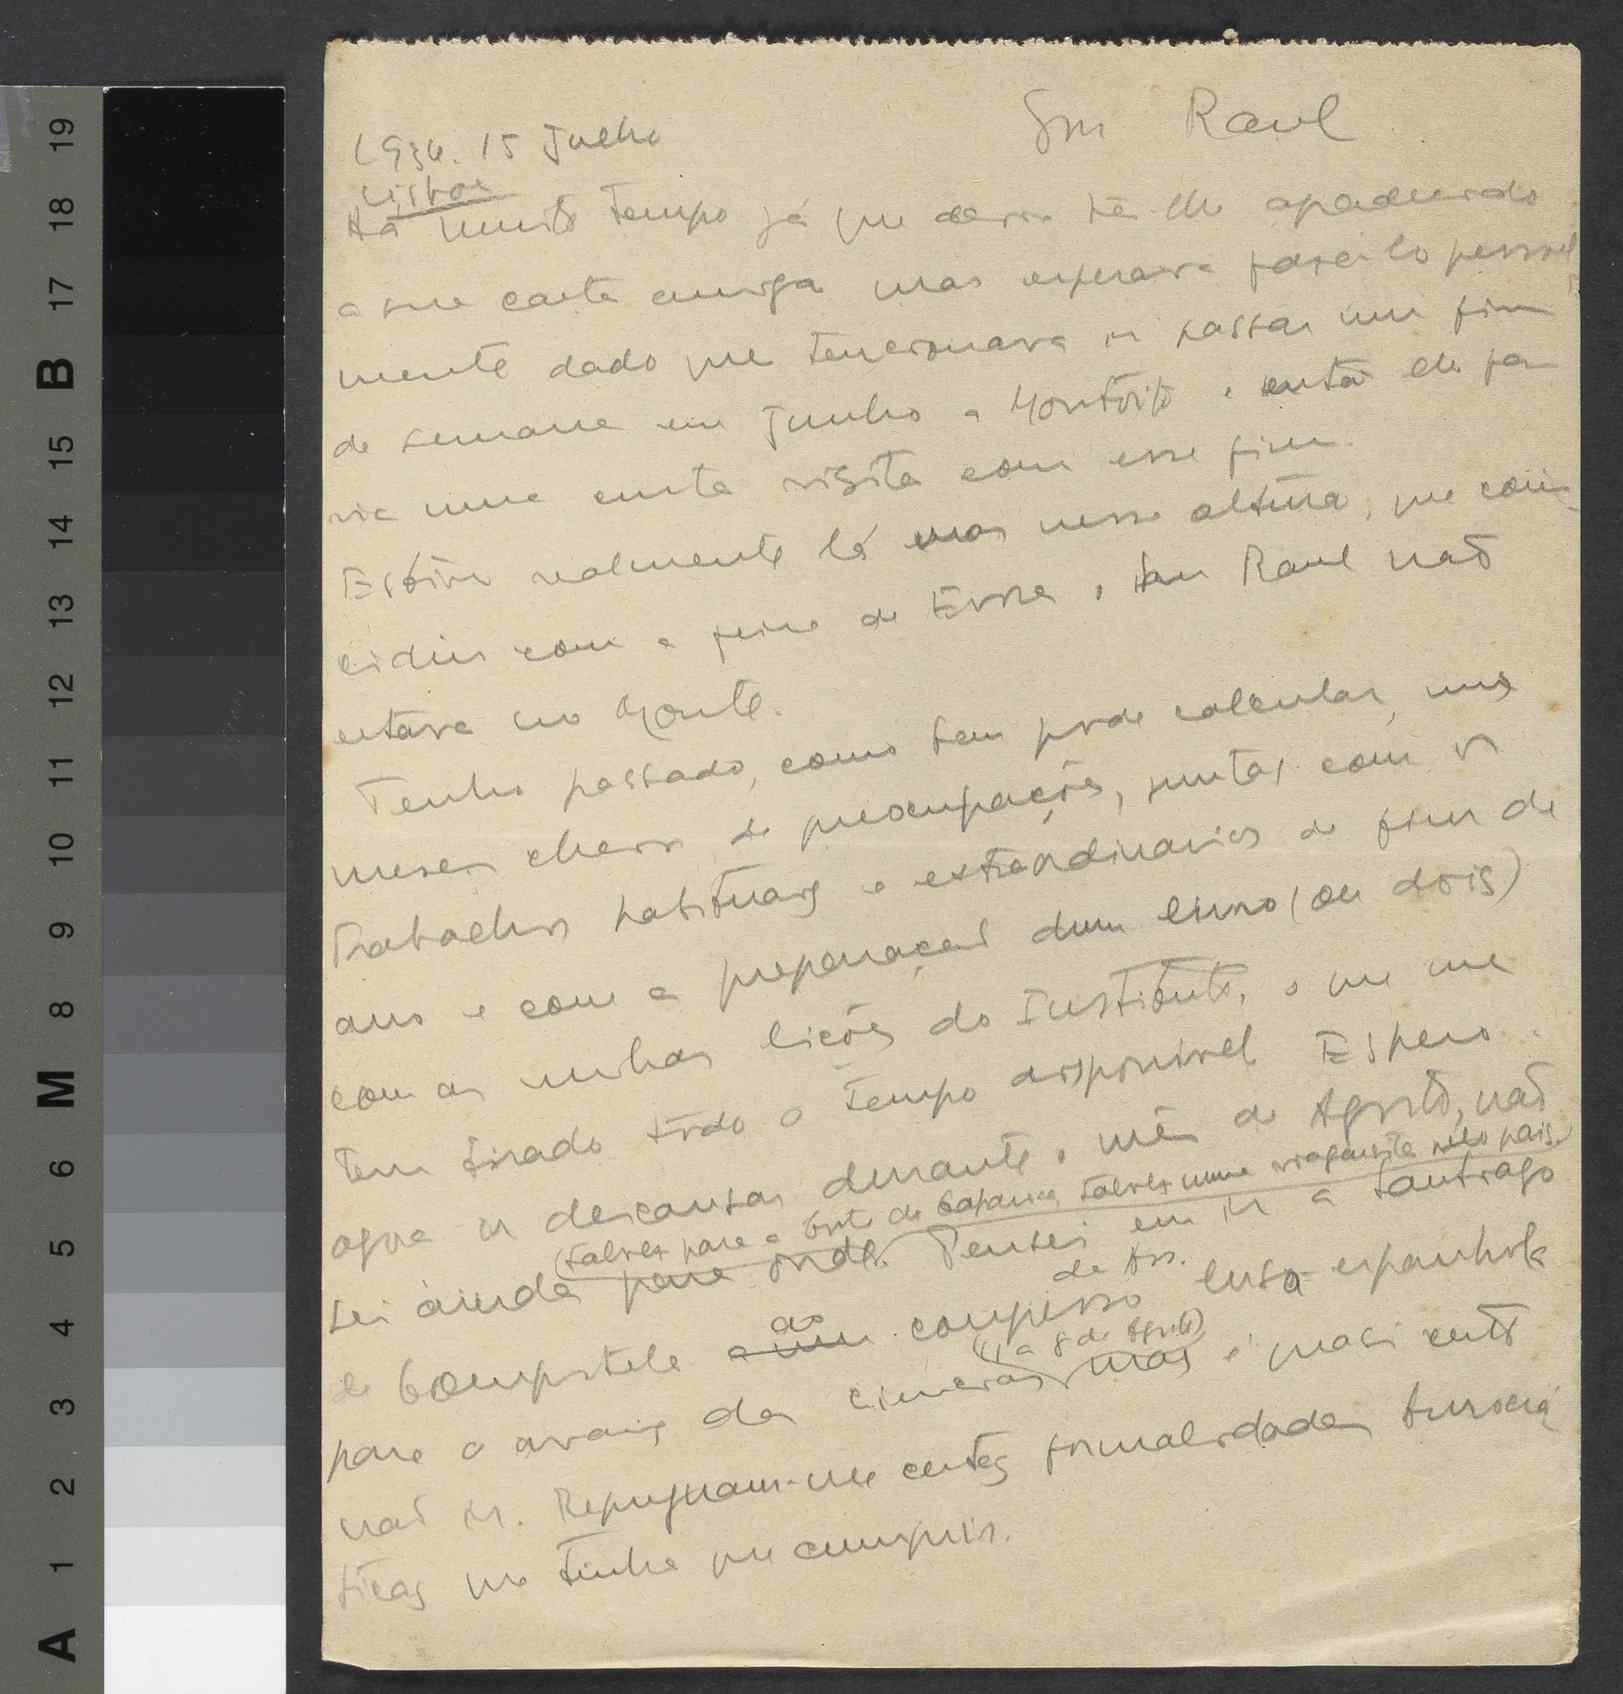 Snr Raul
1934. 15 Julho
Lisboa
Há muito tempo já que devia ter-lhe agradecido
a sua carta amiga mas esperava fazê-lo pessoal
mente dado que tencionava ir passar um fim
de semana em Junho a Montoito e então lhe fa
ria uma curta visita com esse fim.
Estive realmente lá mas nessa altura, que coin
cidiu com a feira de Evora, o Snr Raul não
estava no Monte.
Tenho passado, como bem pode calcular, uns
meses cheios de preocupações, juntas com os
trabalhos habituais e extraordinarios de fim de
ano e com a preparação dum livro (ou dois)
com as minhas lições do Instituto, o que me
tem tirado todo o tempo disponivel. Espero
agora ir descansar durante o mês de Agosto, não
(talvez para a Costa da Caparica, talvez numa viagensita pelo pais)
sei ainda para onde. Pensei em ir a Santiago
de Ass.
de Compostela a um ao congresso luso-espanhol
(1 a 8 de Agosto)
para o avanço das ciencias, mas é quasi certo
não ir. Repugnam-me certas formalidades burocrá
ticas que tinha que cumprir.
19
18
17
B
16
15
14
13
12
11
10
9
8
M
7
6
5
4
3
2
1
A